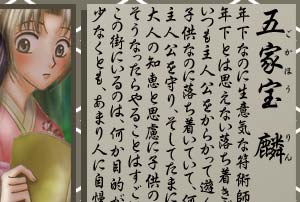 五家宝　麟
ごかほう　りん
年下なのに生意気な符術師
年下とは思えない落ち着き
いつも主人公をからかって遊
子供なのに落ち着いていて、何
主人公を守り、そしてたまに
大人の知恵と思慮に子供の
そうなったらやることはすご
この街にいるのは、何か目的が
少なくとも、あまり人に自慢